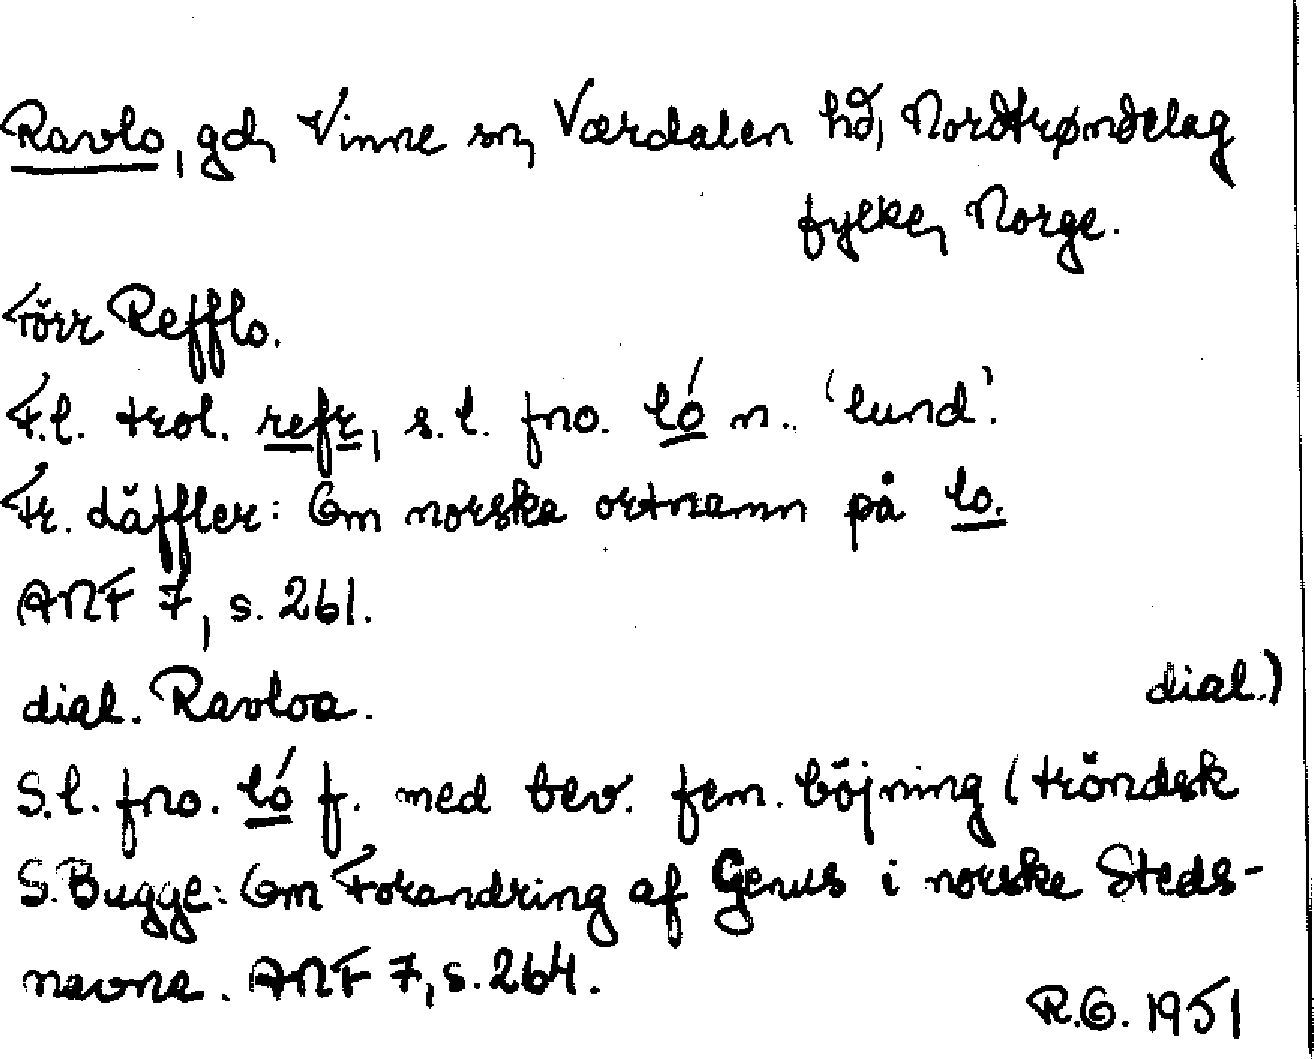 Ravlo, gd, Vinne sn, Værdalen hd, Nordtrøndelag
fylke, Norge.
Förr Refflo.
F.l. trol. refr, s.l. fno. ló n. 'lund'.
Fr. Läffler: Om norska ortnamn på lo.
ANF 7, s. 261.
dial. Ravloa.
S.l. fno. ló f. med bev. fem. böjning (tröndsk dial.)
S. Bugge: Om Forandring af Genus i norske Steds-
navne. ANF 7, s. 264.
R.O. 1951